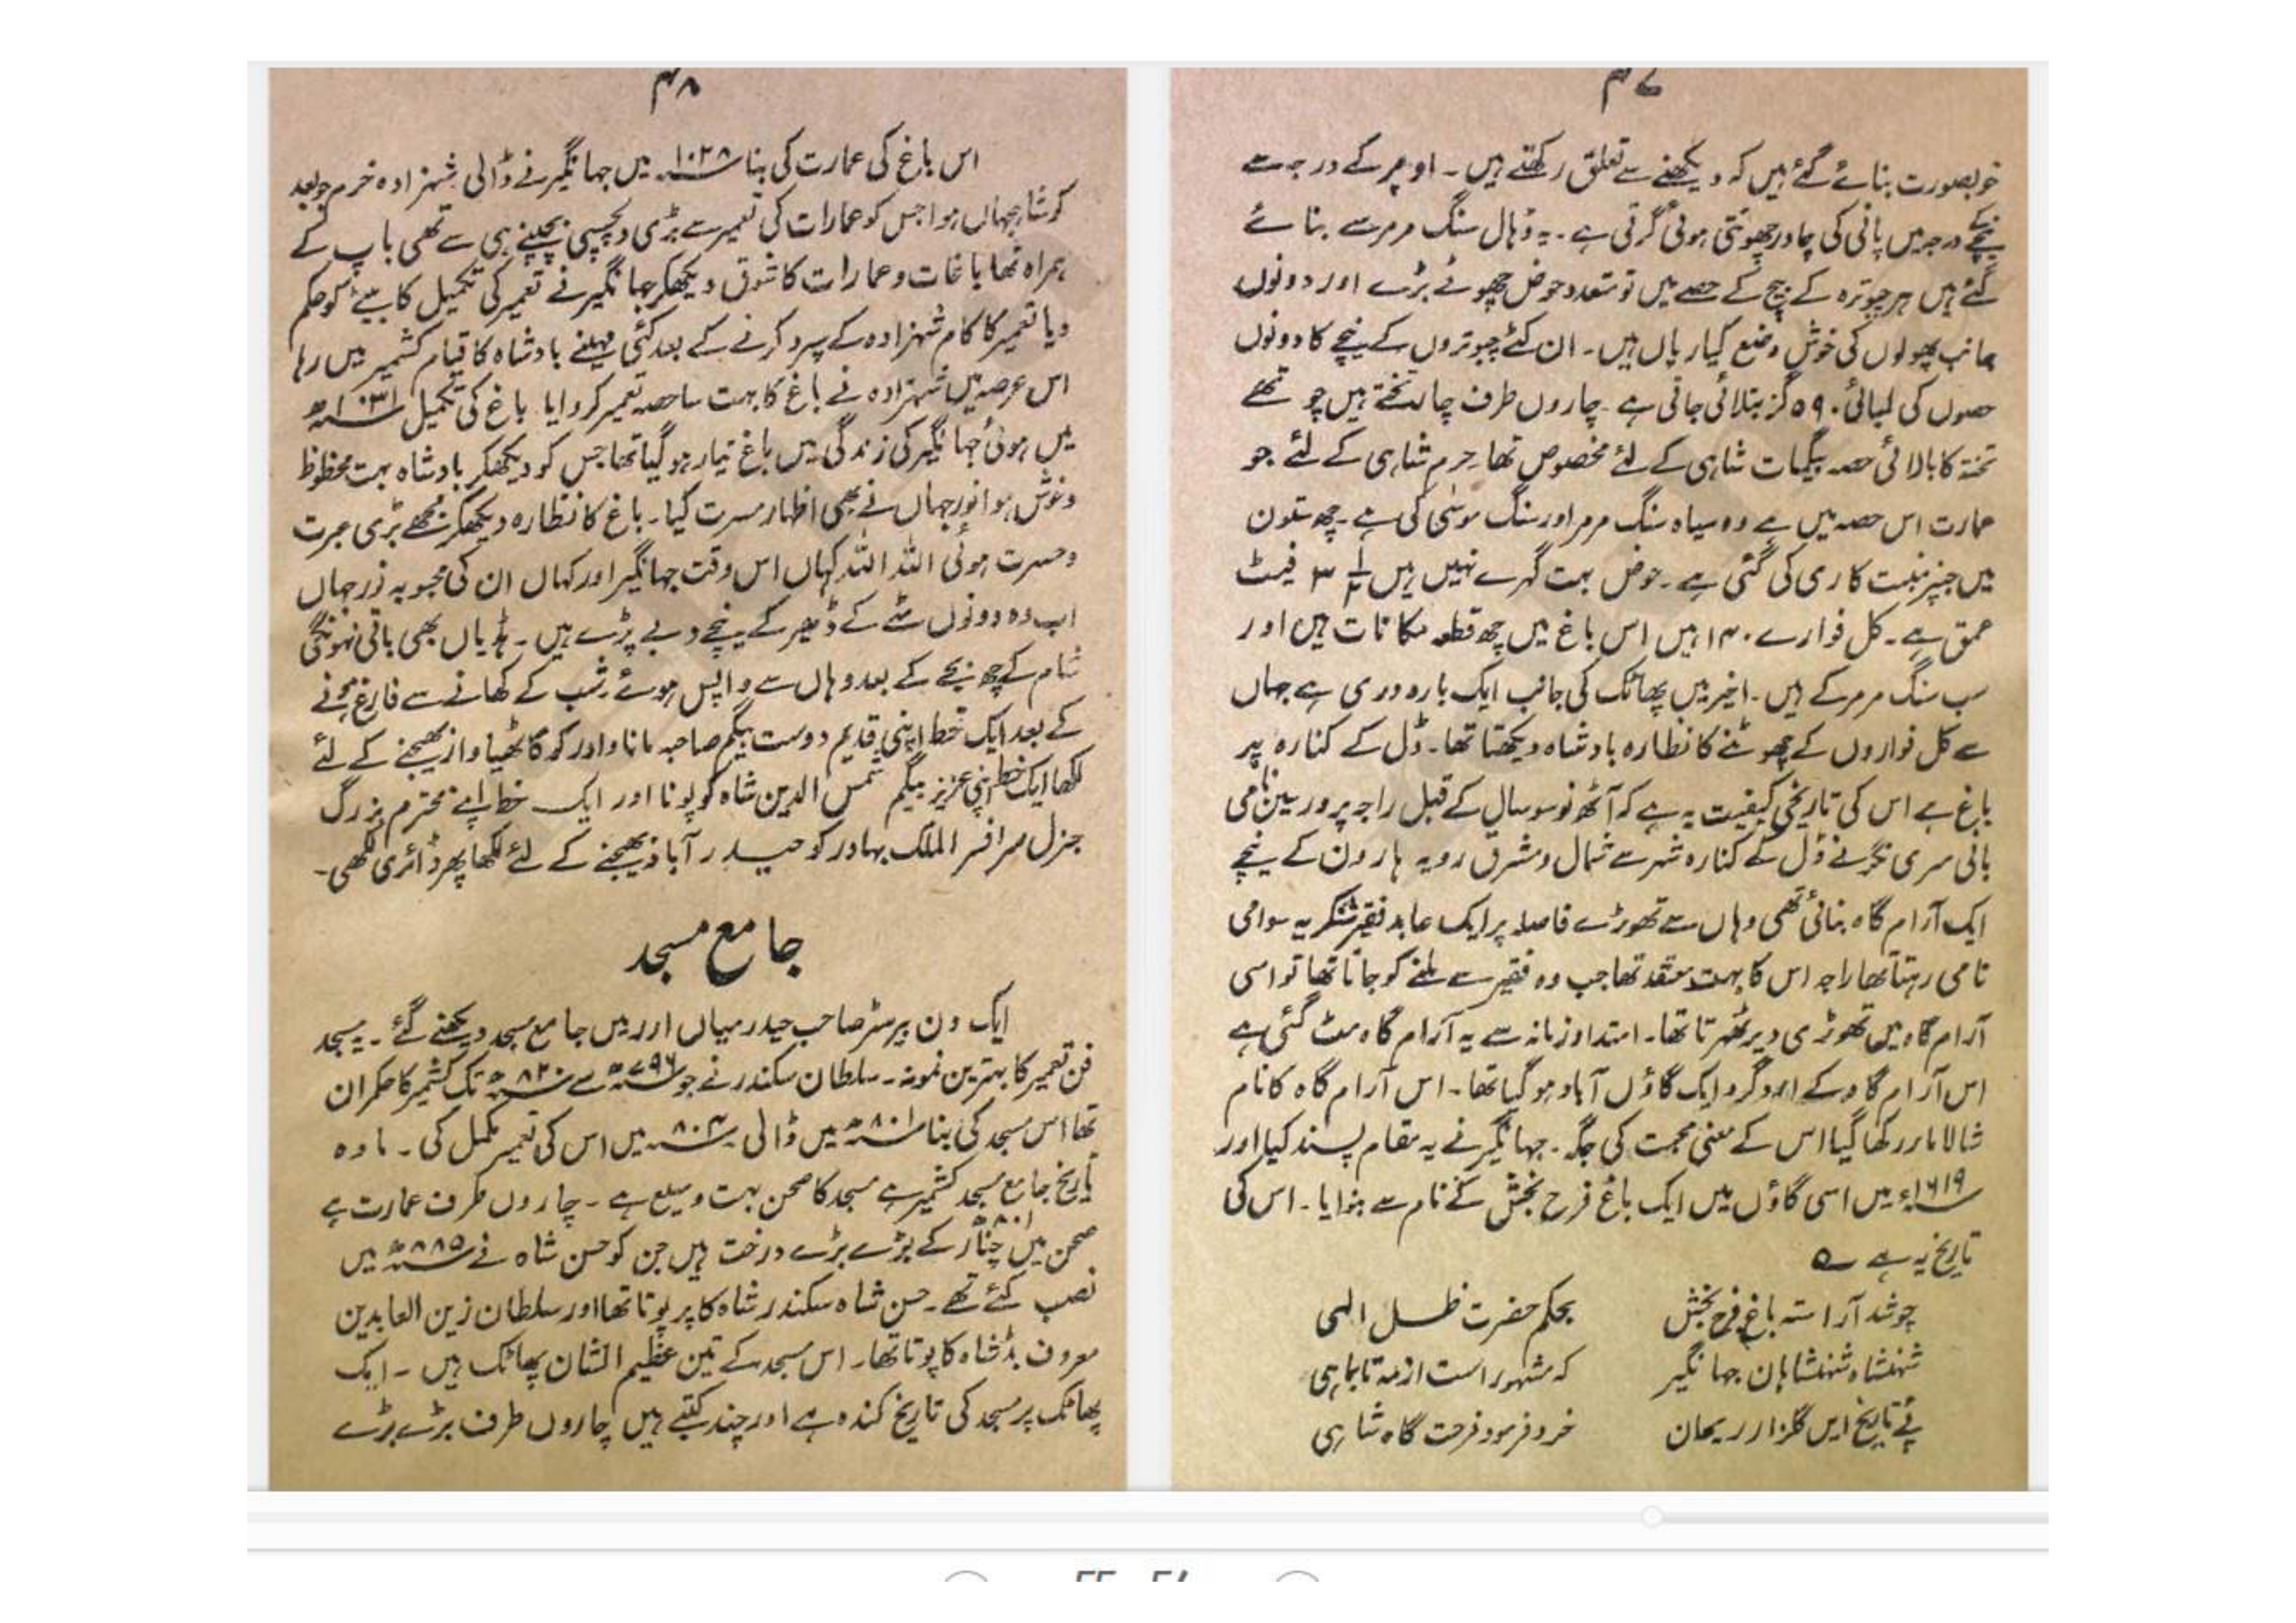 ۴۷
خوبصورت بنائے گئے ہیں کہ دیکھنے سے تعلق رکھتے ہیں ۔ اوپر کے درجہ سے
نیچے کے درجہ میں پانی کی چادر چھوٹتی ہوئی گرتی ہے ۔ یہ ڈہال سنگ مرمر سے بنائے
گئے ہیں ہر چبوترہ کے بیچ کے حصے میں تو متعدد حوض چھوٹے بڑے اور دونوں
جانب پھولوں کی خوش وضع کیاریاں ہیں ۔ ان کٹے چبوتروں کے نیچے کا دونوں
حصوں کی لمبائی ۵۹۰ گز بتلائی جاتی ہے ۔ چاروں طرف چار تختے ہیں چوتھے
تختہ کا بالائی حصہ بیگمات شاہی کے لئے مخصوص تھا حرم شاہی کے لئے جو
عمارت اس حصہ میں ہے وہ سیاہ سنگ مرمر اور سنگ موسیٰ کی ہے ۔ چھ ستون
ہیں جنپر منبت کاری کی گئی ہے ۔ حوض بہت گہرے نہیں ہیں ۳ فیٹ
عمق ہے ۔ کل فوارے ۱۴۰ ہیں اس باغ میں چھ قطعہ مکانات ہیں اور
سب سنگ مرمر کے ہیں ۔ اخیر میں پھاٹک کی جانب ایک بارہ دری ہے جہاں
سے کل فواروں کے چھوٹنے کا نظارہ بادشاہ دیکھتا تھا ۔ ڈل کے کنارہ پر
باغ ہے اس کی تاریخی کیفیت یہ ہے کہ آٹھ نو سو سال کے قبل راجہ پرورسین نامی
بانی سری نگر نے ڈل کے کنارہ شہر سے شمال و مشرق رویہ ہارون کے نیچے
ایک آرام گاہ بنائی تھی وہاں سے تھوڑے فاصلہ پر ایک عابد فقیر سوامی
نامی رہتا تھا راجہ اس کا بہت معتقد تھا جب وہ فقیر سے ملنے کو جاتا تھا تو اسی
آرام گاہ میں تھوڑی دیر ٹھرتا تھا ۔ امتداد زمانہ سے یہ آرام گاہ مٹ گئی ہے
اس آرام گاہ کے اردگرد ایک گاؤں آباد ہو گیا تھا ۔ اس آرام گاہ کا نام
شالامار رکھا گیا اس کے معنی محبت کی جگہ ۔ جہانگیر نے یہ مقام پسند کیا اور
۱۶۱۹ء میں اسی گاؤں میں ایک باغ فرح بخش کے نام سے بنوایا ۔ اس کی
تاریخ یہ ہے ؎
چو شد آراستہ باغ فرح بخش بحکم حضرت ظل الہی
شہنشاہ شہنشاہان جہانگیر کہ مشہور است از مہ تا بماہی
پئے تاریخ ایں گلزار ریحان خرد فرمود فرحت گاہ شاہی
۴۸
اس باغ کی عمارت کی بنا ۱۰۲۸ میں جہانگیر نے ڈالی شہزادہ خرم جو بعد
کو شاہجہاں ہوا جس کو عمارات کی تعمیر سے بڑی دلچسپی بچپنے ہی سے تھی باپ کے
ہمراہ تھا باغات و عمارات کا شوق دیکھکر جہانگیر نے تعمیر کی تکمیل کا بیٹے کو حکم
دیا تعمیر کا کام شہزادہ کے سپرد کرنے کے بعد کئی مہینے بادشاہ کا قیام کشمیر میں رہا
اس عرصہ میں شہزادہ نے باغ کا بہت سا حصہ تعمیر کروایا باغ کی تکمیل ۱۰۳۱ھ
میں ہوئی جہانگیر کی زندگی میں باغ تیار ہو گیا تھا جس کو دیکھکر بادشاہ بہت محظوظ
و خوش ہوا نورجہاں نے بھی اظہار مسرت کیا ۔ باغ کا نظارہ دیکھکر مجھے بڑی عبرت
و حسرت ہوئی اللہ اللہ کہاں اس وقت جہانگیر اور کہاں ان کی محبوبہ نورجہاں
اب وہ دونوں مٹے کے ڈھیر کے نیچے دبے پڑے ہیں ۔ ہڈیاں بھی باقی نہونگی
شام کے چھ بجے کے بعد وہاں سے واپس ہوئے شب کے کھانے سے فارغ ہونے
کے بعد ایک خط اپنی قدیم دوست بیگم صاحبہ ماناوادر کو کاٹھیاواز بھیجنے کے لئے
لکھا ایک خط اپنی عزیز بیگم شمس الدین شاہ کو پونا اور ایک خط اپنے محترم بزرگ
جنرل سر افسر الملک بہادر کو حیدرآباد بھیجنے کے لئے لکھا پھر ڈائری لکھی ۔
جامع مسجد
ایک دن بیرسٹر صاحب حیدر میاں اور میں جامع مسجد دیکھنے گئے ۔ یہ مسجد
فن تعمیر کا بہترین نمونہ ۔ سلطان سکندر نے جو ۷۹۶ھ سے ۸۲۰ھ تک کشمیر کا حکمران
تھا اس مسجد کی بنا ۸۰۱ھ میں ڈالی ۸۰۴ھ میں اس کی تعمیر مکمل کی ۔ مادہ
تاریخ جامع مسجد کشمیر ہے مسجد کا صحن بہت وسیع ہے ۔ چاروں طرف عمارت ہے
۸۰۱ھ
صحن میں چنار کے بڑے بڑے درخت ہیں جن کو حسن شاہ نے ۸۸۵ھ میں
نصب کئے تھے ۔ حسن شاہ سکندر شاہ کا پرپوتا تھا اور سلطان زین العابدین
معروف بڈشاہ کا پوتا تھا ۔ اس مسجد کے تین عظیم الشان پھاٹک ہیں ۔ ایک
پھاٹک پر مسجد کی تاریخ کندہ ہے اور چند کتبے ہیں چاروں طرف بڑے بڑے